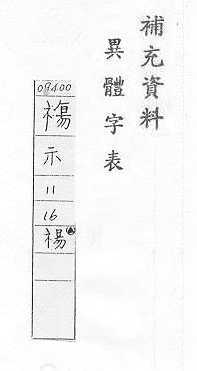 補充資料
異體字表
09400
示
11
16
禓